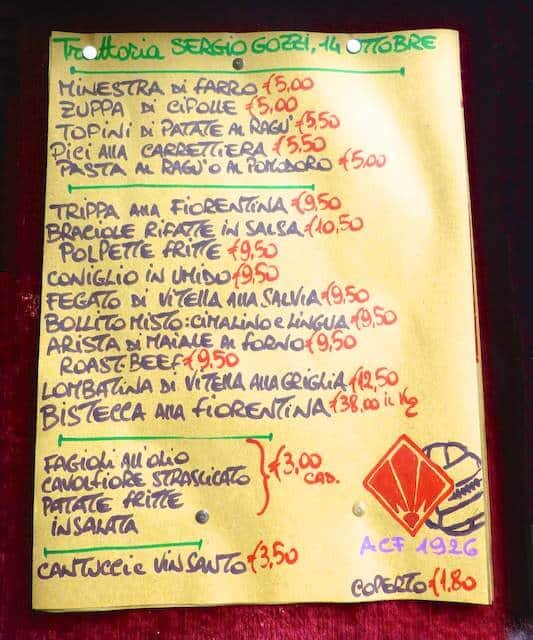 Trattoria SERGIO GOZZI, 14 OTTOBRE
MINESTRA DI FARRO €5,00
ZUPPA DI CIPOLLE €5,00
TOPINI DI PATATE AL RAGU' €5,50
PICI ALLA CARRETTIERA €5,50
PASTA AL RAGU' O AL POMODORO €5,00
TRIPPA ALLA FIORENTINA €9,50
BRACIOLE RIFATTE IN SALSA €10,50
POLPETTE FRITTE €9,50
CONIGLIO IN UMIDO €9,50
FEGATO DI VITELLA ALLA SALVIA €9,50
BOLLITO MISTO: CIMALINO e LINGUA €9,50
ARISTA DI MAIALE AL FORNO €9,50
ROAST-BEEF €9,50
LOMBATINA DI VITELLA ALLA GRIGLIA €12,50
BISTECCA ALLA FIORENTINA €38,00 IL Kg
FAGIOLI ALL'OLIO
CAVOLFIORE STRASCICATO
PATATE FRITTE
INSALATA
€3,00
CAD.
ACF 1926
CANTUCCI e VINSANTO €3,50
COPERTO €1,80